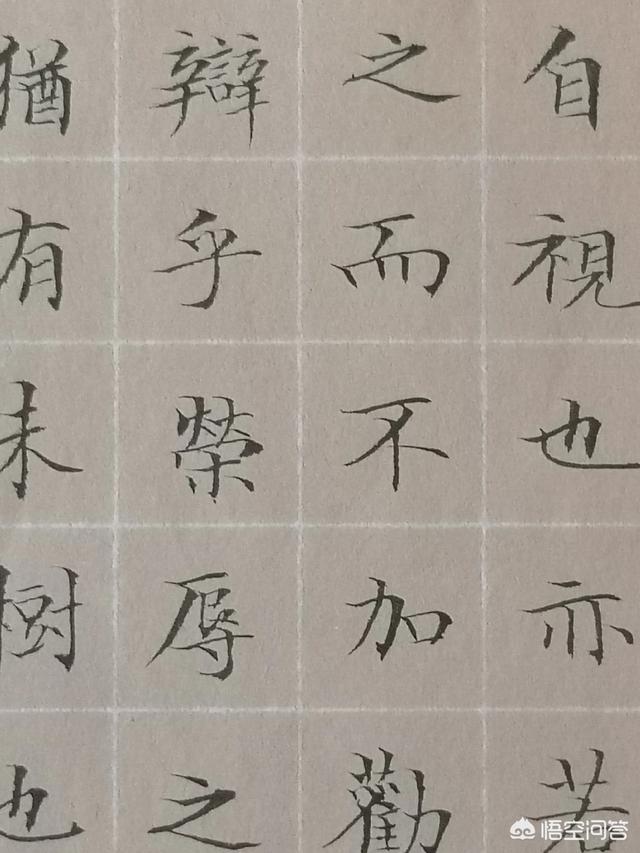 自視也亦若
之而不加勸
辯乎榮辱之
猶有未樹也
悟空问答